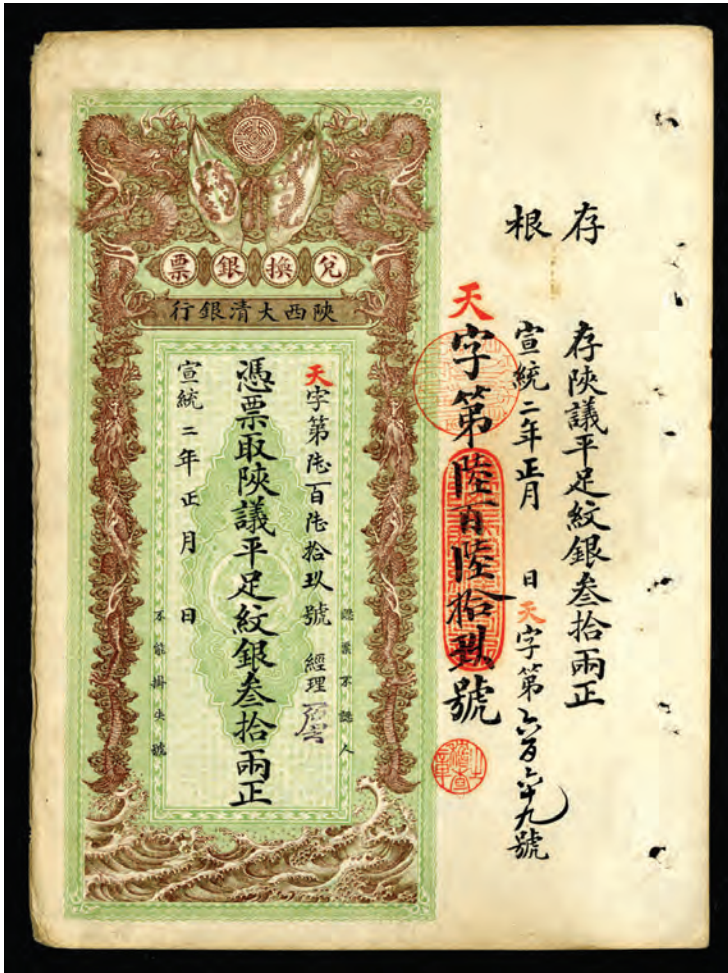 存根
存陝議平足紋銀叁拾兩正
宣統二年正月 日 天字第六百六十九號
天字第陸百陸拾玖號
兌換銀票
陝西大清銀行
認票不認人
天字第陸百陸拾玖號 經理
憑票取陝議平足紋銀叁拾兩正
宣統二年正月 日
不能掛失號